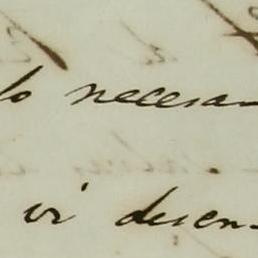 lo necesar
vi desen